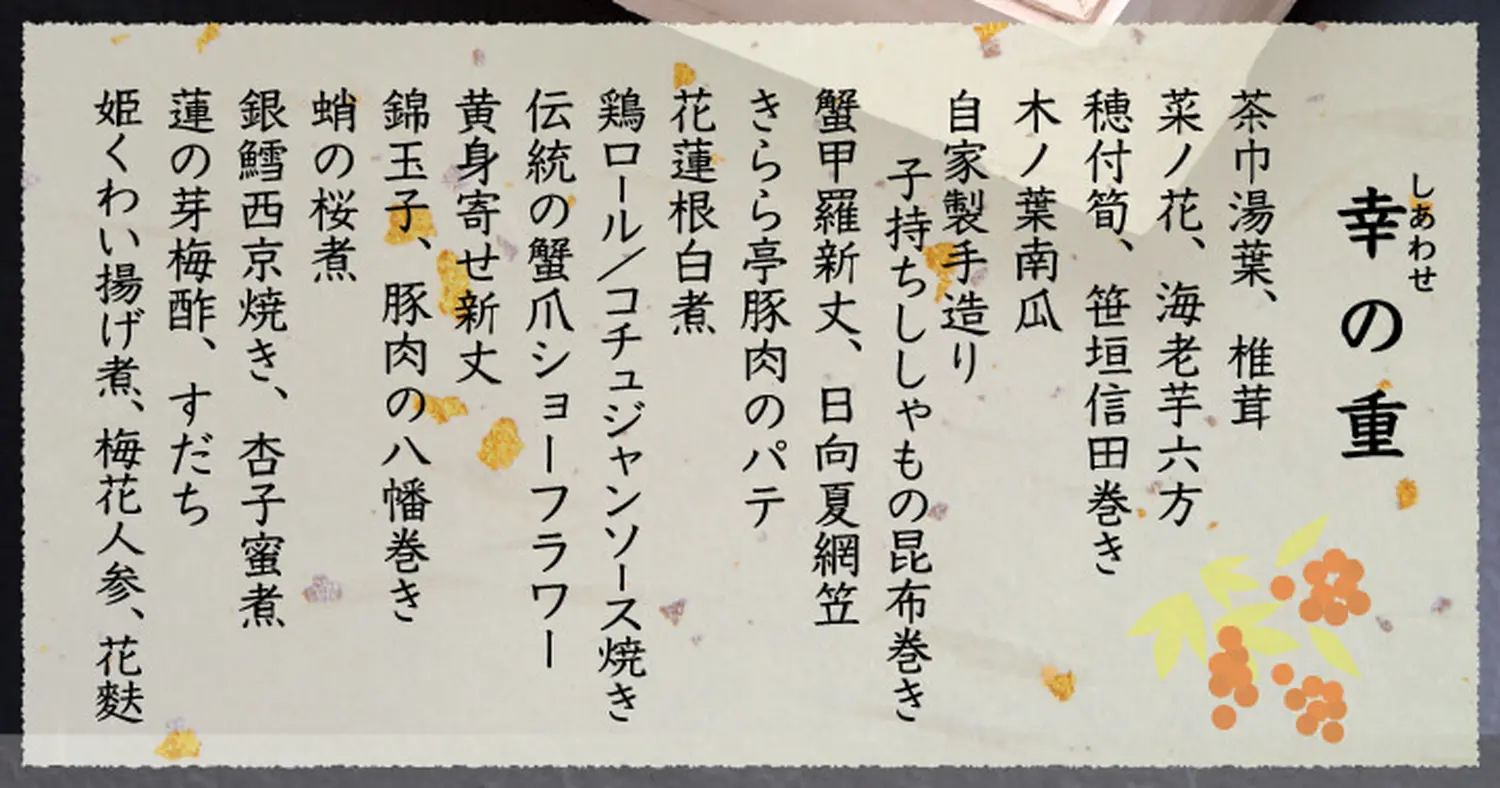 しあわせ
幸の重
茶巾湯葉、椎茸
菜ノ花、海老芋六方
穂付筍、笹垣信田巻き
木ノ葉南瓜
自家製手造り
子持ちししゃもの昆布巻き
蟹甲羅新丈、日向夏網笠
きらら亭豚肉のパテ
花蓮根白煮
鶏ロール／コチュジャンソース焼き
伝統の蟹爪ショーフラワー
黄身寄せ新丈
錦玉子、豚肉の八幡巻き
蛸の桜煮
銀鱈西京焼き、杏子蜜煮
蓮の芽梅酢、すだち
姫くわい揚げ煮、梅花人参、花麩